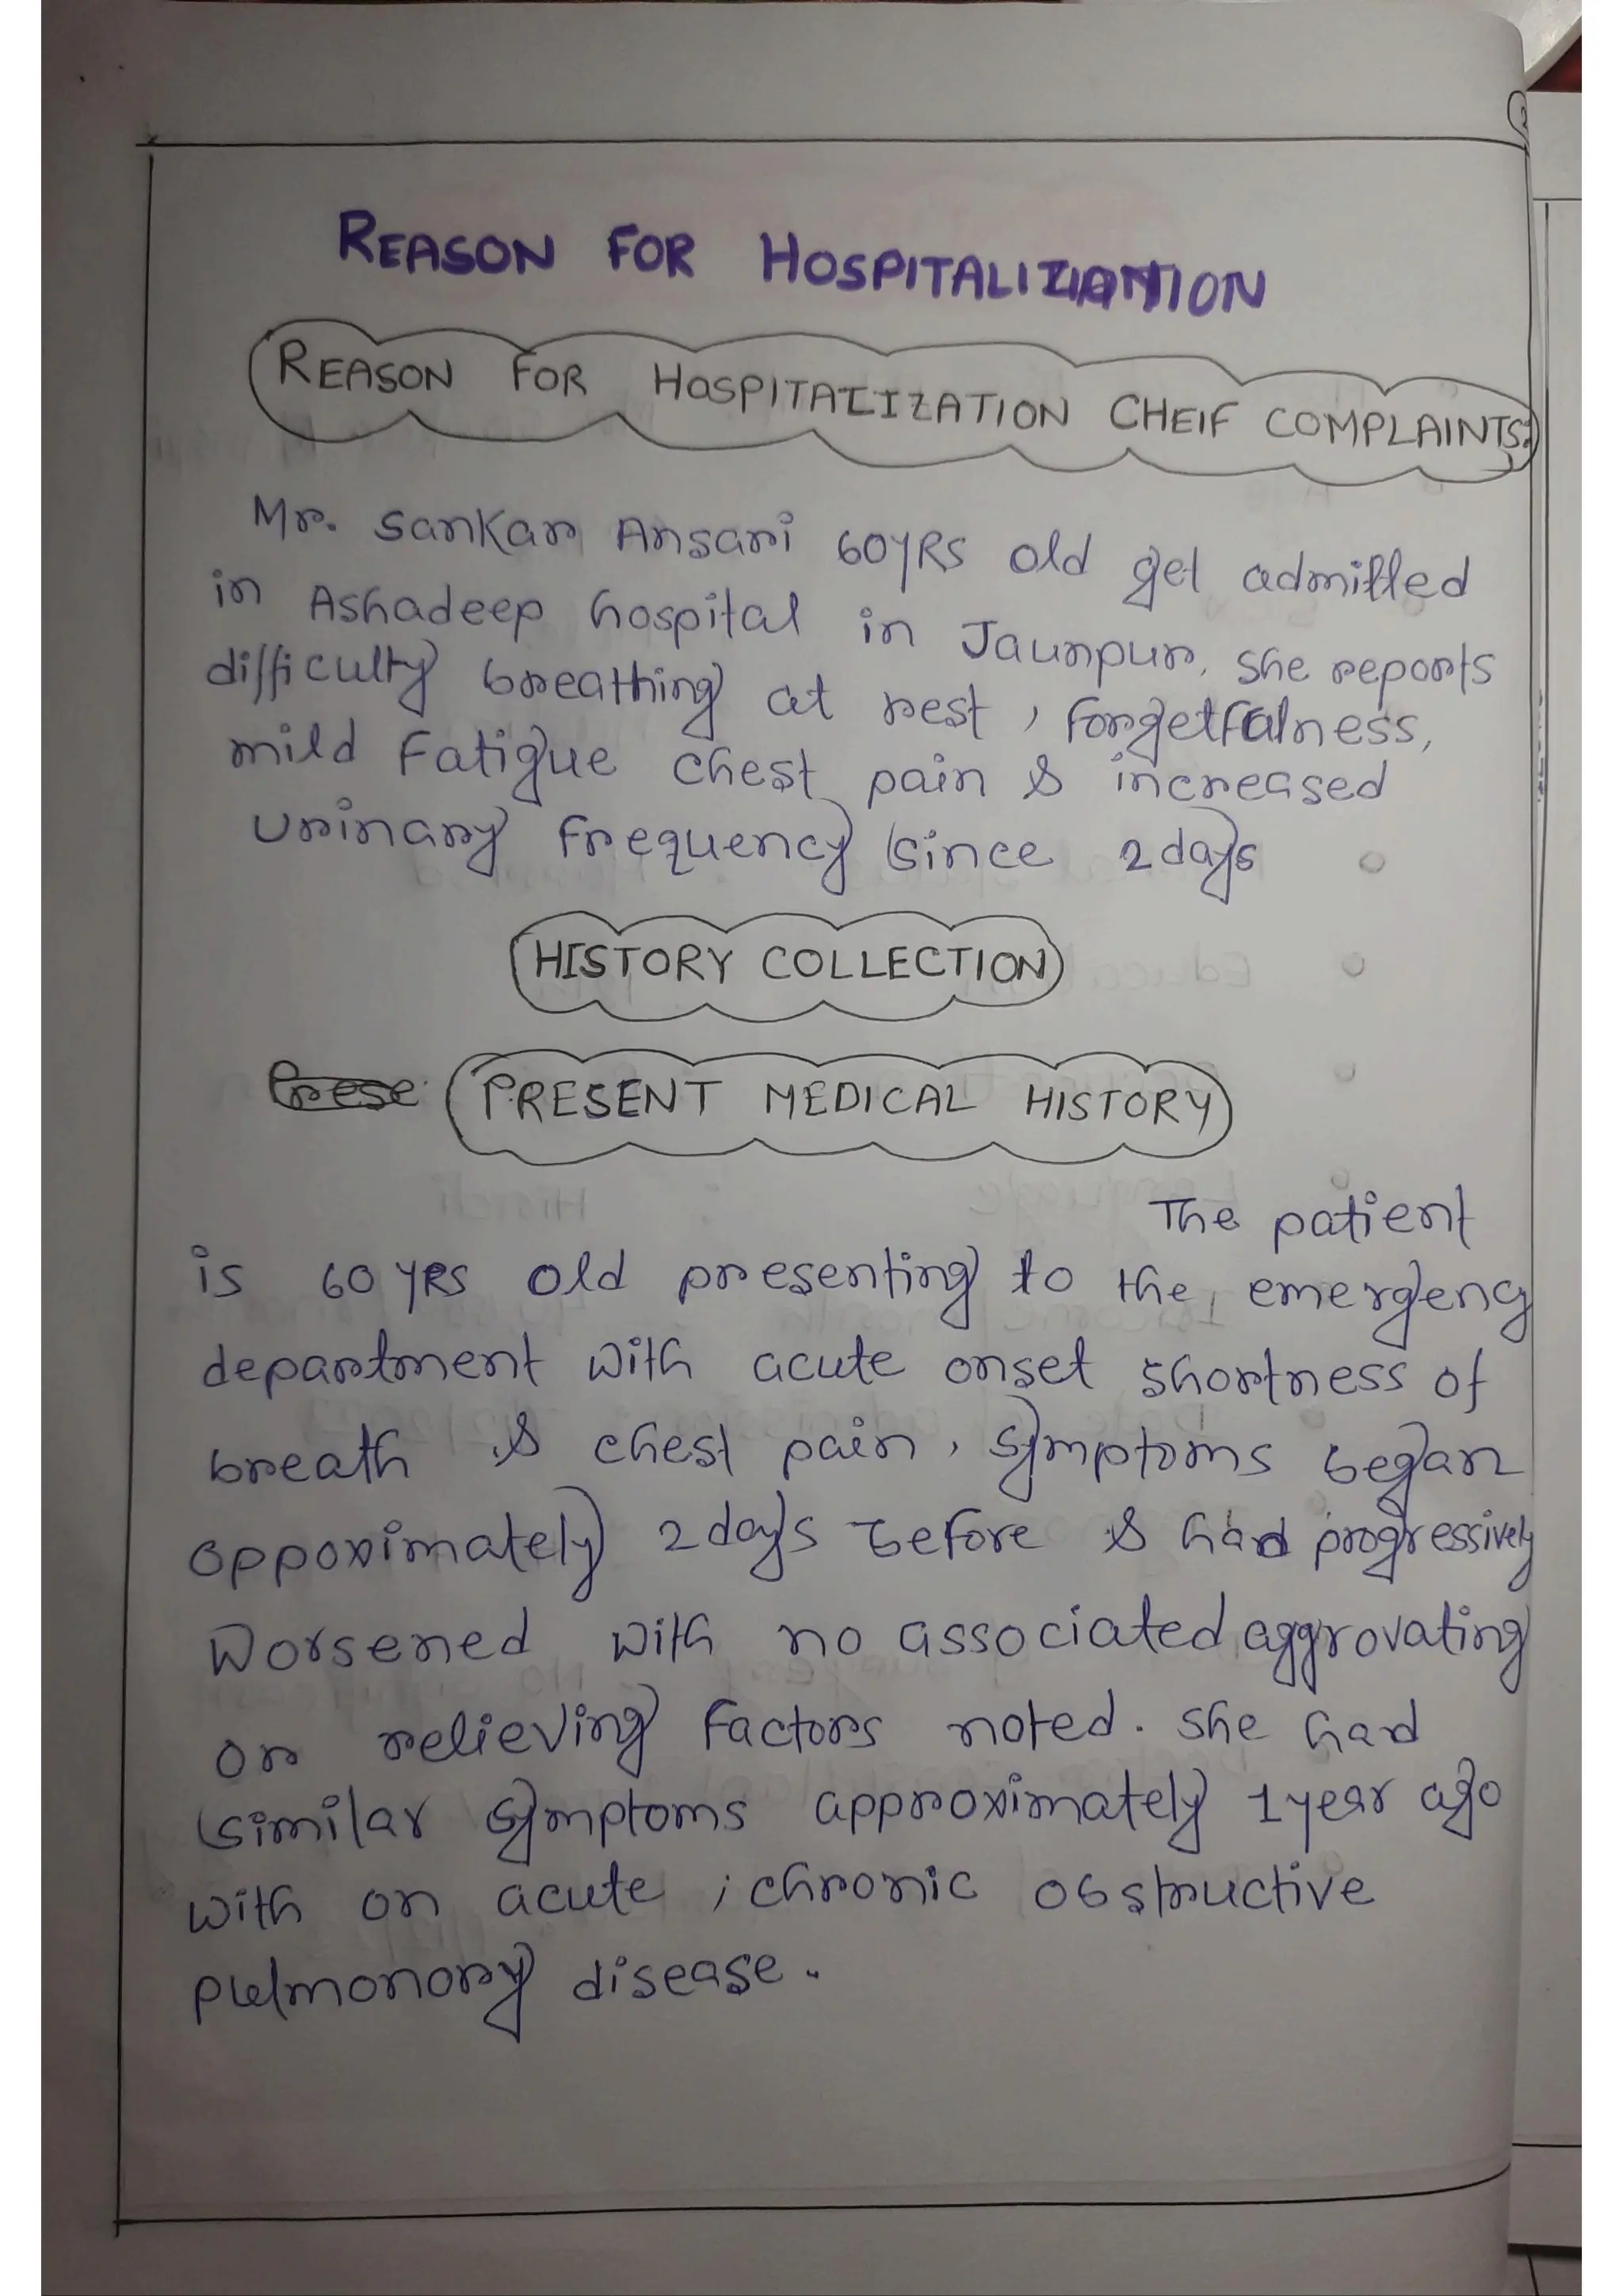 REASON FOR HOSPITALIZATION
REASON FOR HOSPITALIZATION CHEIF COMPLAINTS:
Mr. Sankar Ansari 60yRS old get admitted
in Ashadeep hospital in Jaunpur, she reports
difficulty breathing at rest, forgetfulness,
mild Fatigue chest pain & increased
Urinary frequency since 2days
HISTORY COLLECTION
Prese
PRESENT MEDICAL HISTORY
The patient
is 60 yRs old presenting to the emergency
department with acute onset shortness of
breath & chest pain, symptoms began
oppoximately 2days before & had progressively
Worsened with no associated aggrovating
or relieving factors noted. she had
similar symptoms approximately 1year ago
with on acute, chronic obstructive
pulmonory disease.